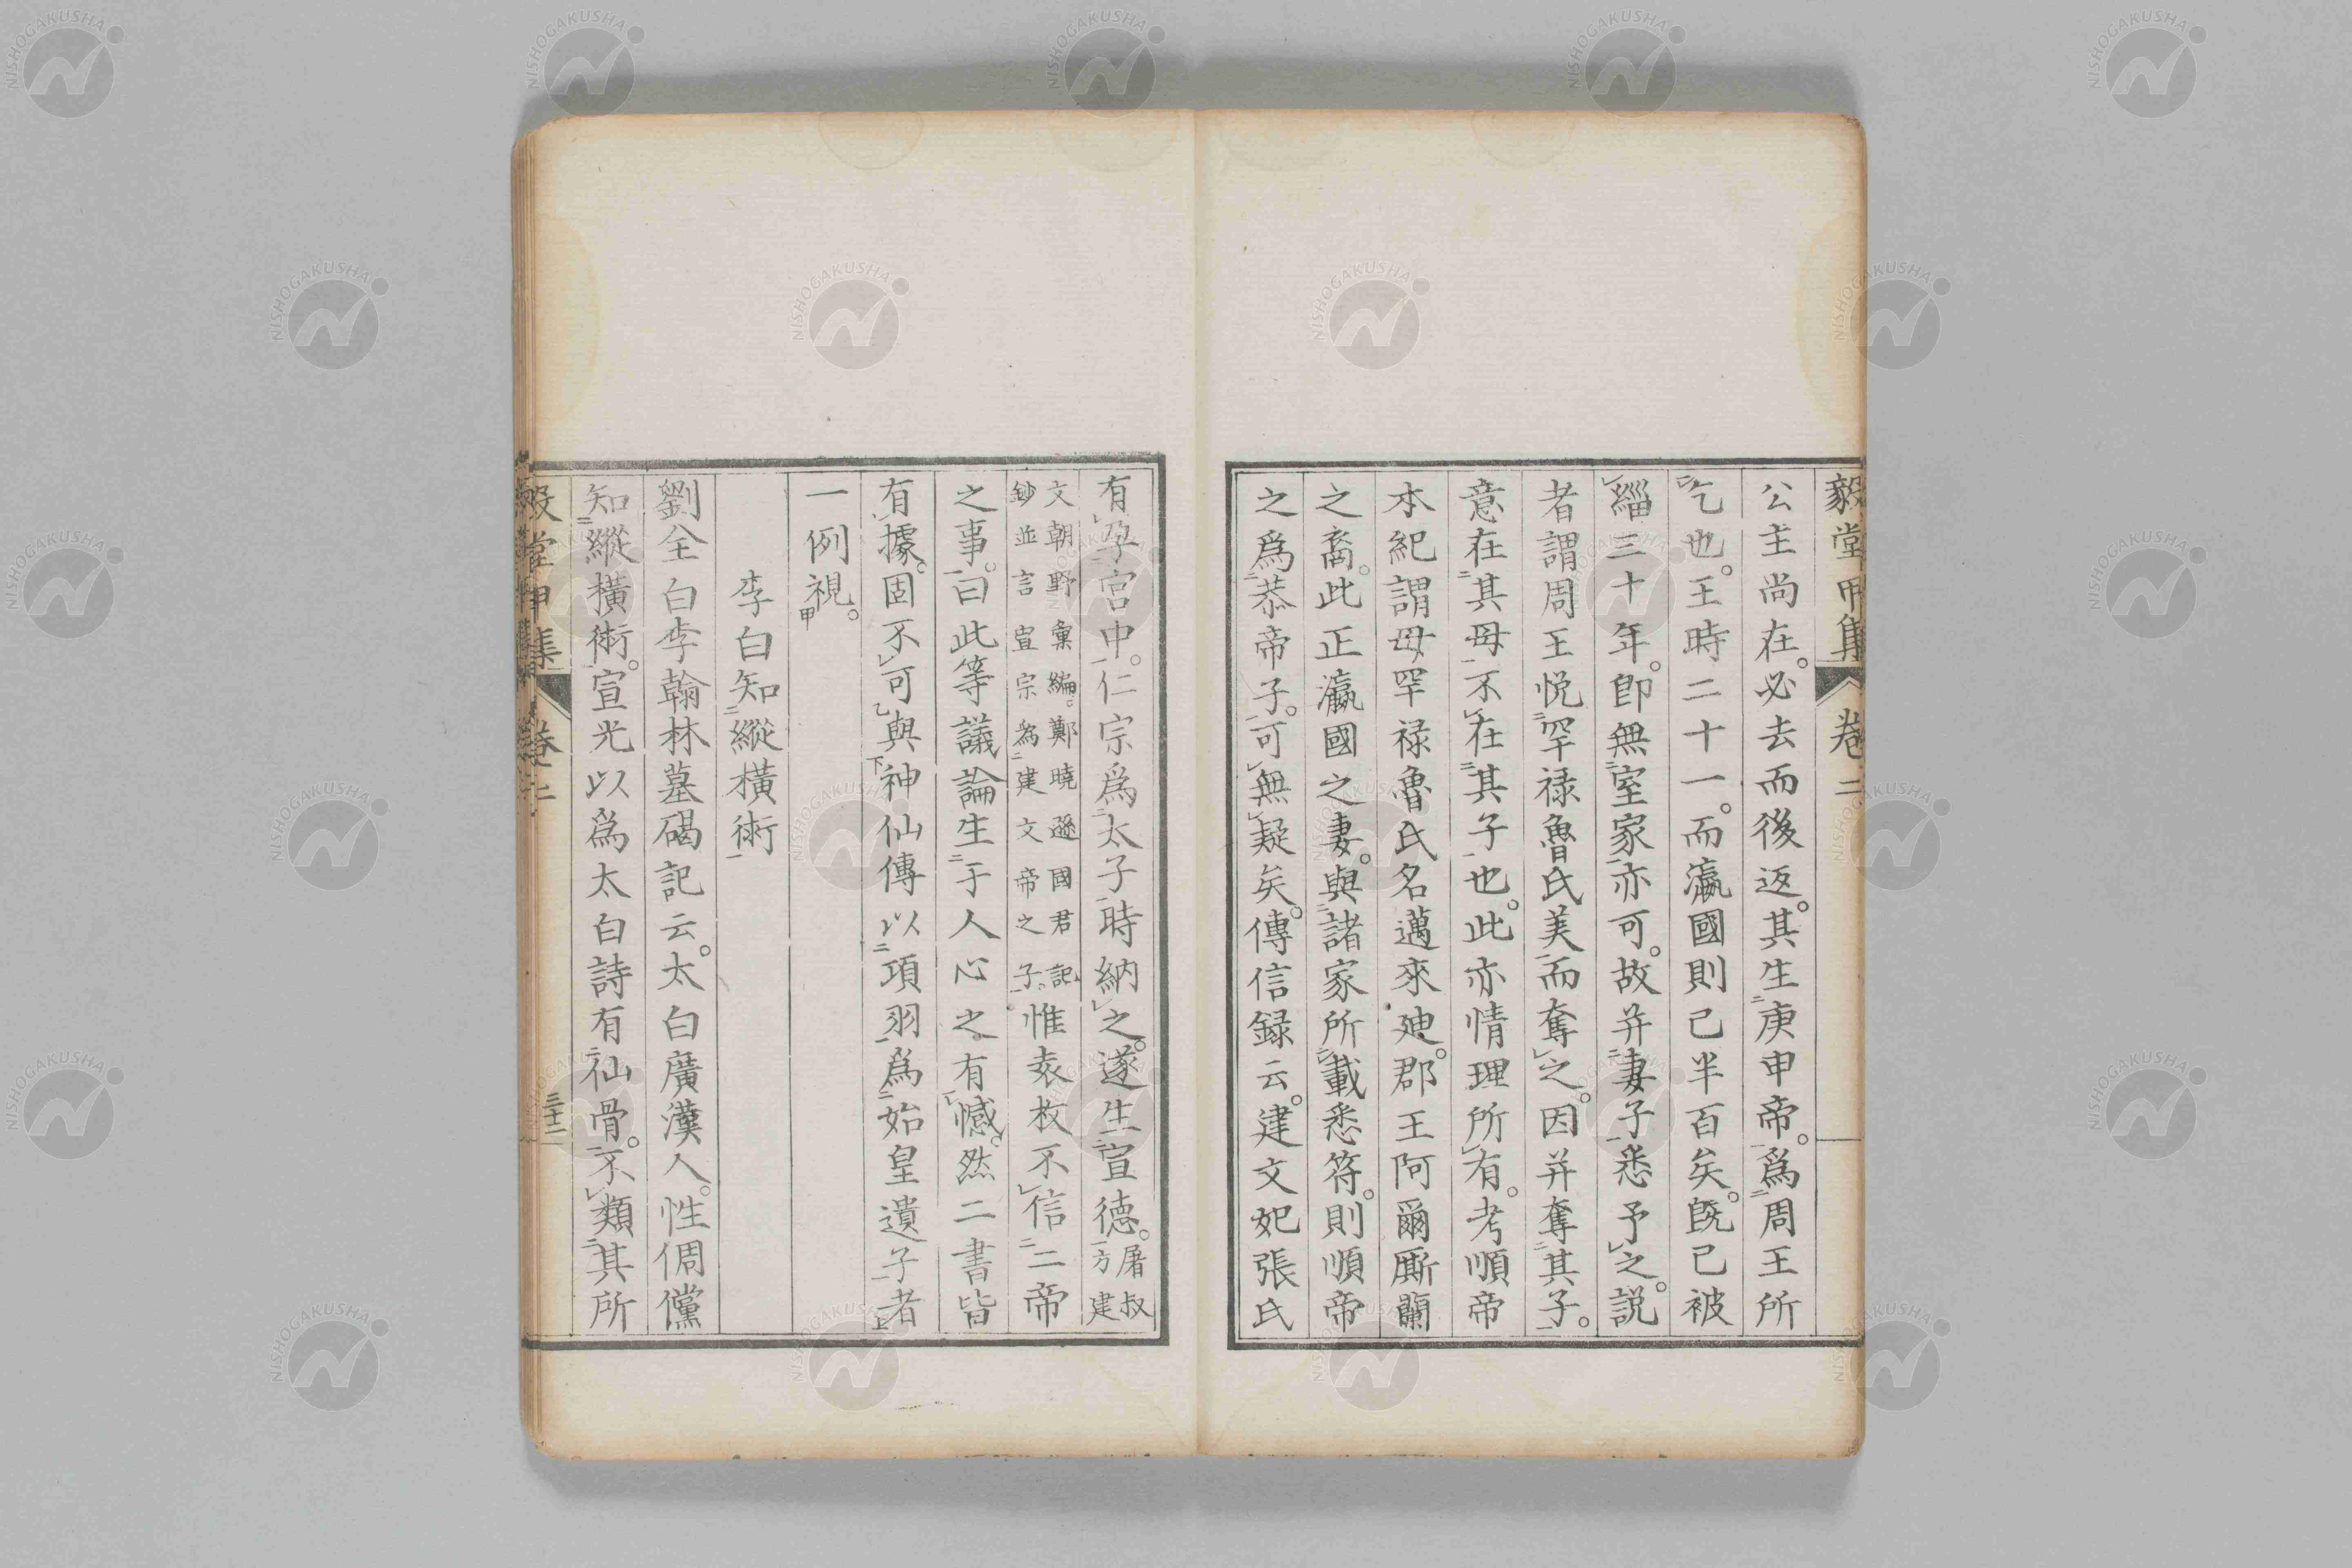 毅堂甲集　卷二
公主尚在。必去而後返。其生庚申帝。爲周王所
乞也。王時二十一。而瀛國則已半百矣。既已被
緇三十年。卽無室家亦可。故并妻子悉予之。説
者謂周王悅罕禄魯氏美而奪之。因并奪其子。
意在其母不在其子也。此亦情理所有。考順帝
本紀謂母罕禄魯氏名邁來廸。郡王阿爾厮蘭
之裔。此正瀛國之妻。與諸家所載悉符。則順帝
之爲恭帝子。可無疑矣。傳信録云。建文妃張氏
有孕宮中。仁宗爲太子時納之。遂生宣德。屠叔方建
文朝野彙編。鄭曉遜國君記鈔並言宣宗爲建文帝之子。惟袁枚不信二帝
之事。曰此等議論生于人心之有憾。然二書皆
有據。固不可與神仙傳以項羽爲始皇遺子者
一例視。
李白知縱橫術
劉全白李翰林墓碣記云。太白廣漢人。性倜儻
知縱橫術。宣光以爲太白詩有仙骨。不類其所
毅堂甲集　卷二　三十二
NISHOGAKUSHA